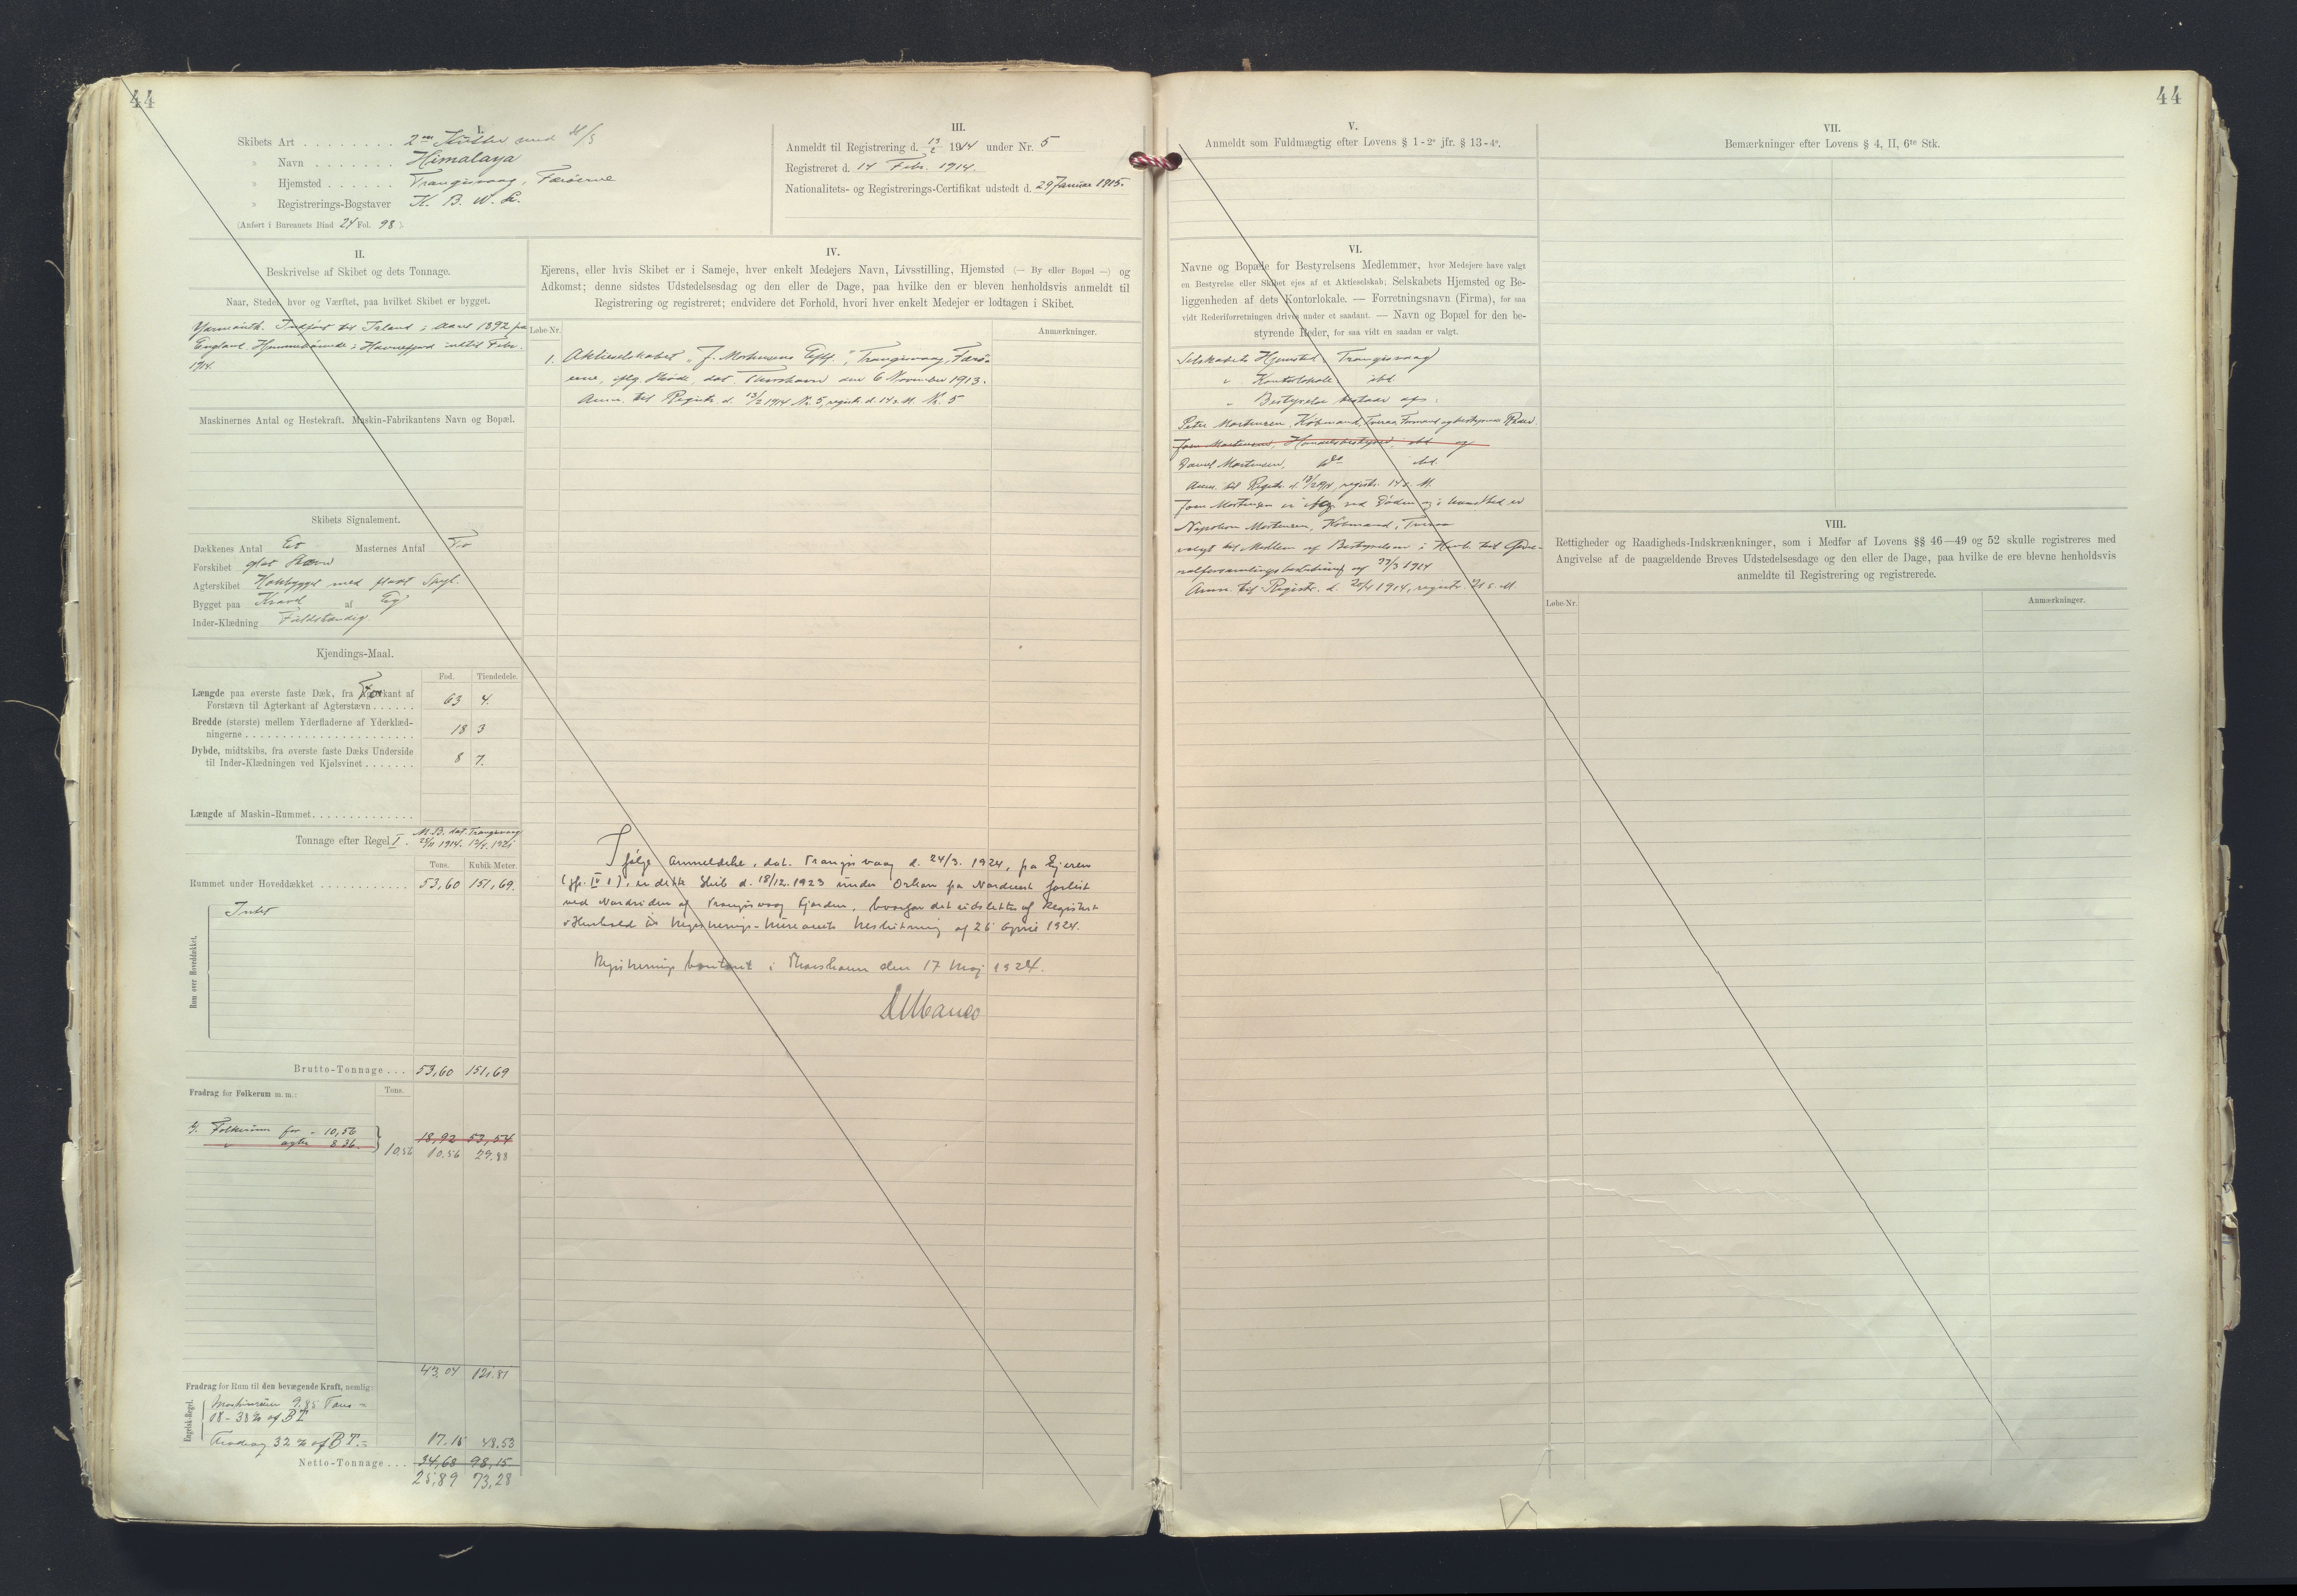 44
I.
Skibets Art . . . . . . . . 2 m Kutter med H/S
» Navn . . . . . . . Himalaya
» Hjemsted . . . . . . Trangisvaag, Færøerne
» Registrerings-Bogstaver N. B. W. L.
(Anført i Bureauets Bind 24 Fol. 98 )
III.
Anmeldt til Registrering d. 13/2 1914 under Nr. 5
Registreret d. 14 Febr. 1914.
Nationalitets- og Registrerings-Certifikat udstedt d. 29 Januar 1915.
II.
Beskrivelse af Skibet og dets Tonnage.
Naar, Stedet hvor og Værftet, paa hvilket Skibet er bygget.
Yarmouth. Indført til Island i Aaret 1892 fra
England. Hjemmehørende i Havnefjord indtil Febr.
1914.
Maskinernes Antal og Hestekraft. Maskin-Fabrikantens Navn og Bopæl.
Skibets Signalement.
Dækkenes Antal Et Masternes Antal To
Forskibet glat Stævn
Agterskibet Hækbygget med fladt Spejl.
Bygget paa Kravel af Eg
Inder-Klædning Fuldstændig.
Kjendings-Maal.
Fod. Tiendedele.
Længde paa øverste faste Dæk, fra Forkant af
Forstævn til Agterkant af Agterstævn . . . . . . 63 4.
Bredde (største) mellem Yderfladerne af Yderklæd-
ningerne . . . . . . . . . . . . 18 3
Dybde, midtskibs, fra øverste faste Dæks Underside
til Inder-Klædningen ved Kjølsvinet . . . . . . . 8 7.
Længde af Maskin-Rummet. . . . . . . . . . . . . .
Tonnage efter Regel I. M. B. dat. Trangisvaag
1914. 1921
Tons. Kubik-Meter.
Rummet under Hoveddækket . . . . . . . . . . . . 53,60 151,69.
Rum over Hoveddækket.
Intet
Brutto-Tonnage . . . 53,60 151,69
Fradrag for Folkerum m. m.: Tons.
Folkerum for - 10,56
" agter 8 36. 18,92 53,54
10.56 10.56 29.88
43,04 121.81
Fradrag for Rum til den bevægende Kraft, nemlig:
Engelsk-Regel.
Maskinrum 9.85 Tons =
18 - 38 % af BT
Fradrag 32 % af BT. = 17.15 48.53
Netto-Tonnage . . . 34,68 98,15.
25,89 73,28
IV.
Ejerens, eller hvis Skibet er i Sameje, hver enkelt Medejers Navn, Livsstilling, Hjemsted (— By eller Bopæl —) og
Adkomst; denne sidstes Udstedelsesdag og den eller de Dage, paa hvilke den er bleven henholdsvis anmeldt til
Registrering og registreret; endvidere det Forhold, hvori hver enkelt Medejer er lodtagen i Skibet.
Løbe-Nr. Anmærkninger.
1. Aktieselskabet "J. Mortensens Eftf.", Trangisvaag, Færø-
erne, iflg. Skøde, dat. Thorshavn den 6 November 1913.
Anm. til Registr. d. 13/2 1914 Nr. 5, registr. d. 14 s. M. Nr. 5
Ifølge Anmeldelse, dat. Trangisvaag d. 24/3. 1924, fra Ejeren
(jfr. IV 1), er dette Skib d. 18/12. 1923 under Orkan fra Nordvest forlist
ved Nordsiden af Trangisvaag Fjorden, hvorfor det udslettes af Registret
i Henhold til Registrerings-Bureauets Beslutning af 26 April 1924.
Registreringskontoret i Thorshavn den 17 Maj 1924.
44
V.
Anmeldt som Fuldmægtig efter Lovens § 1 - 2º jfr. § 13 - 4º.
VI.
Navne og Bopæle for Bestyrelsens Medlemmer, hvor Medejere have valgt
en Bestyrelse eller Skibet ejes af et Aktieselskab; Selskabets Hjemsted og Be-
liggenheden af dets Kontorlokale. — Forretningsnavn (Firma), for saa
vidt Rederiforretningen drives under et saadant. — Navn og Bopæl for den be-
styrende Reder, for saa vidt en saadan er valgt.
Selskabets Hjemsted: Trangisvaag
" Kontorlokale: ibd.
" Bestyrelse bestaar af:
Peter Mortensen, Købmand, Tveraa, Formand og bestyrende Reder
Joen Mortensen, Handelsbestyrer, ibd og
Daniel Mortensen, do ibd.
Anm. til Registr. d. 13/2 1914, registr. 14 s. M.
Joen Mortensen er afg. ved Døden og i hans Sted er
Napoleon Mortensen, Købmand, Tveraa
valgt til Medlem af Bestyrelsen i Henh. til Gene-
ralforsamlingsbeslutning af 3/3 1914
Anm. til Registr. d. 20/4 1914, registr. 21 s. M.
VII.
Bemærkninger efter Lovens § 4, II, 6te Stk.
VIII.
Rettigheder og Raadigheds-Indskrænkninger, som i Medfør af Lovens §§ 46—49 og 52 skulle registreres med
Angivelse af de paagældende Breves Udstedelsesdage og den eller de Dage, paa hvilke de ere blevne henholdsvis
anmeldte til Registrering og registrerede.
Løbe-Nr. Anmærkninger.